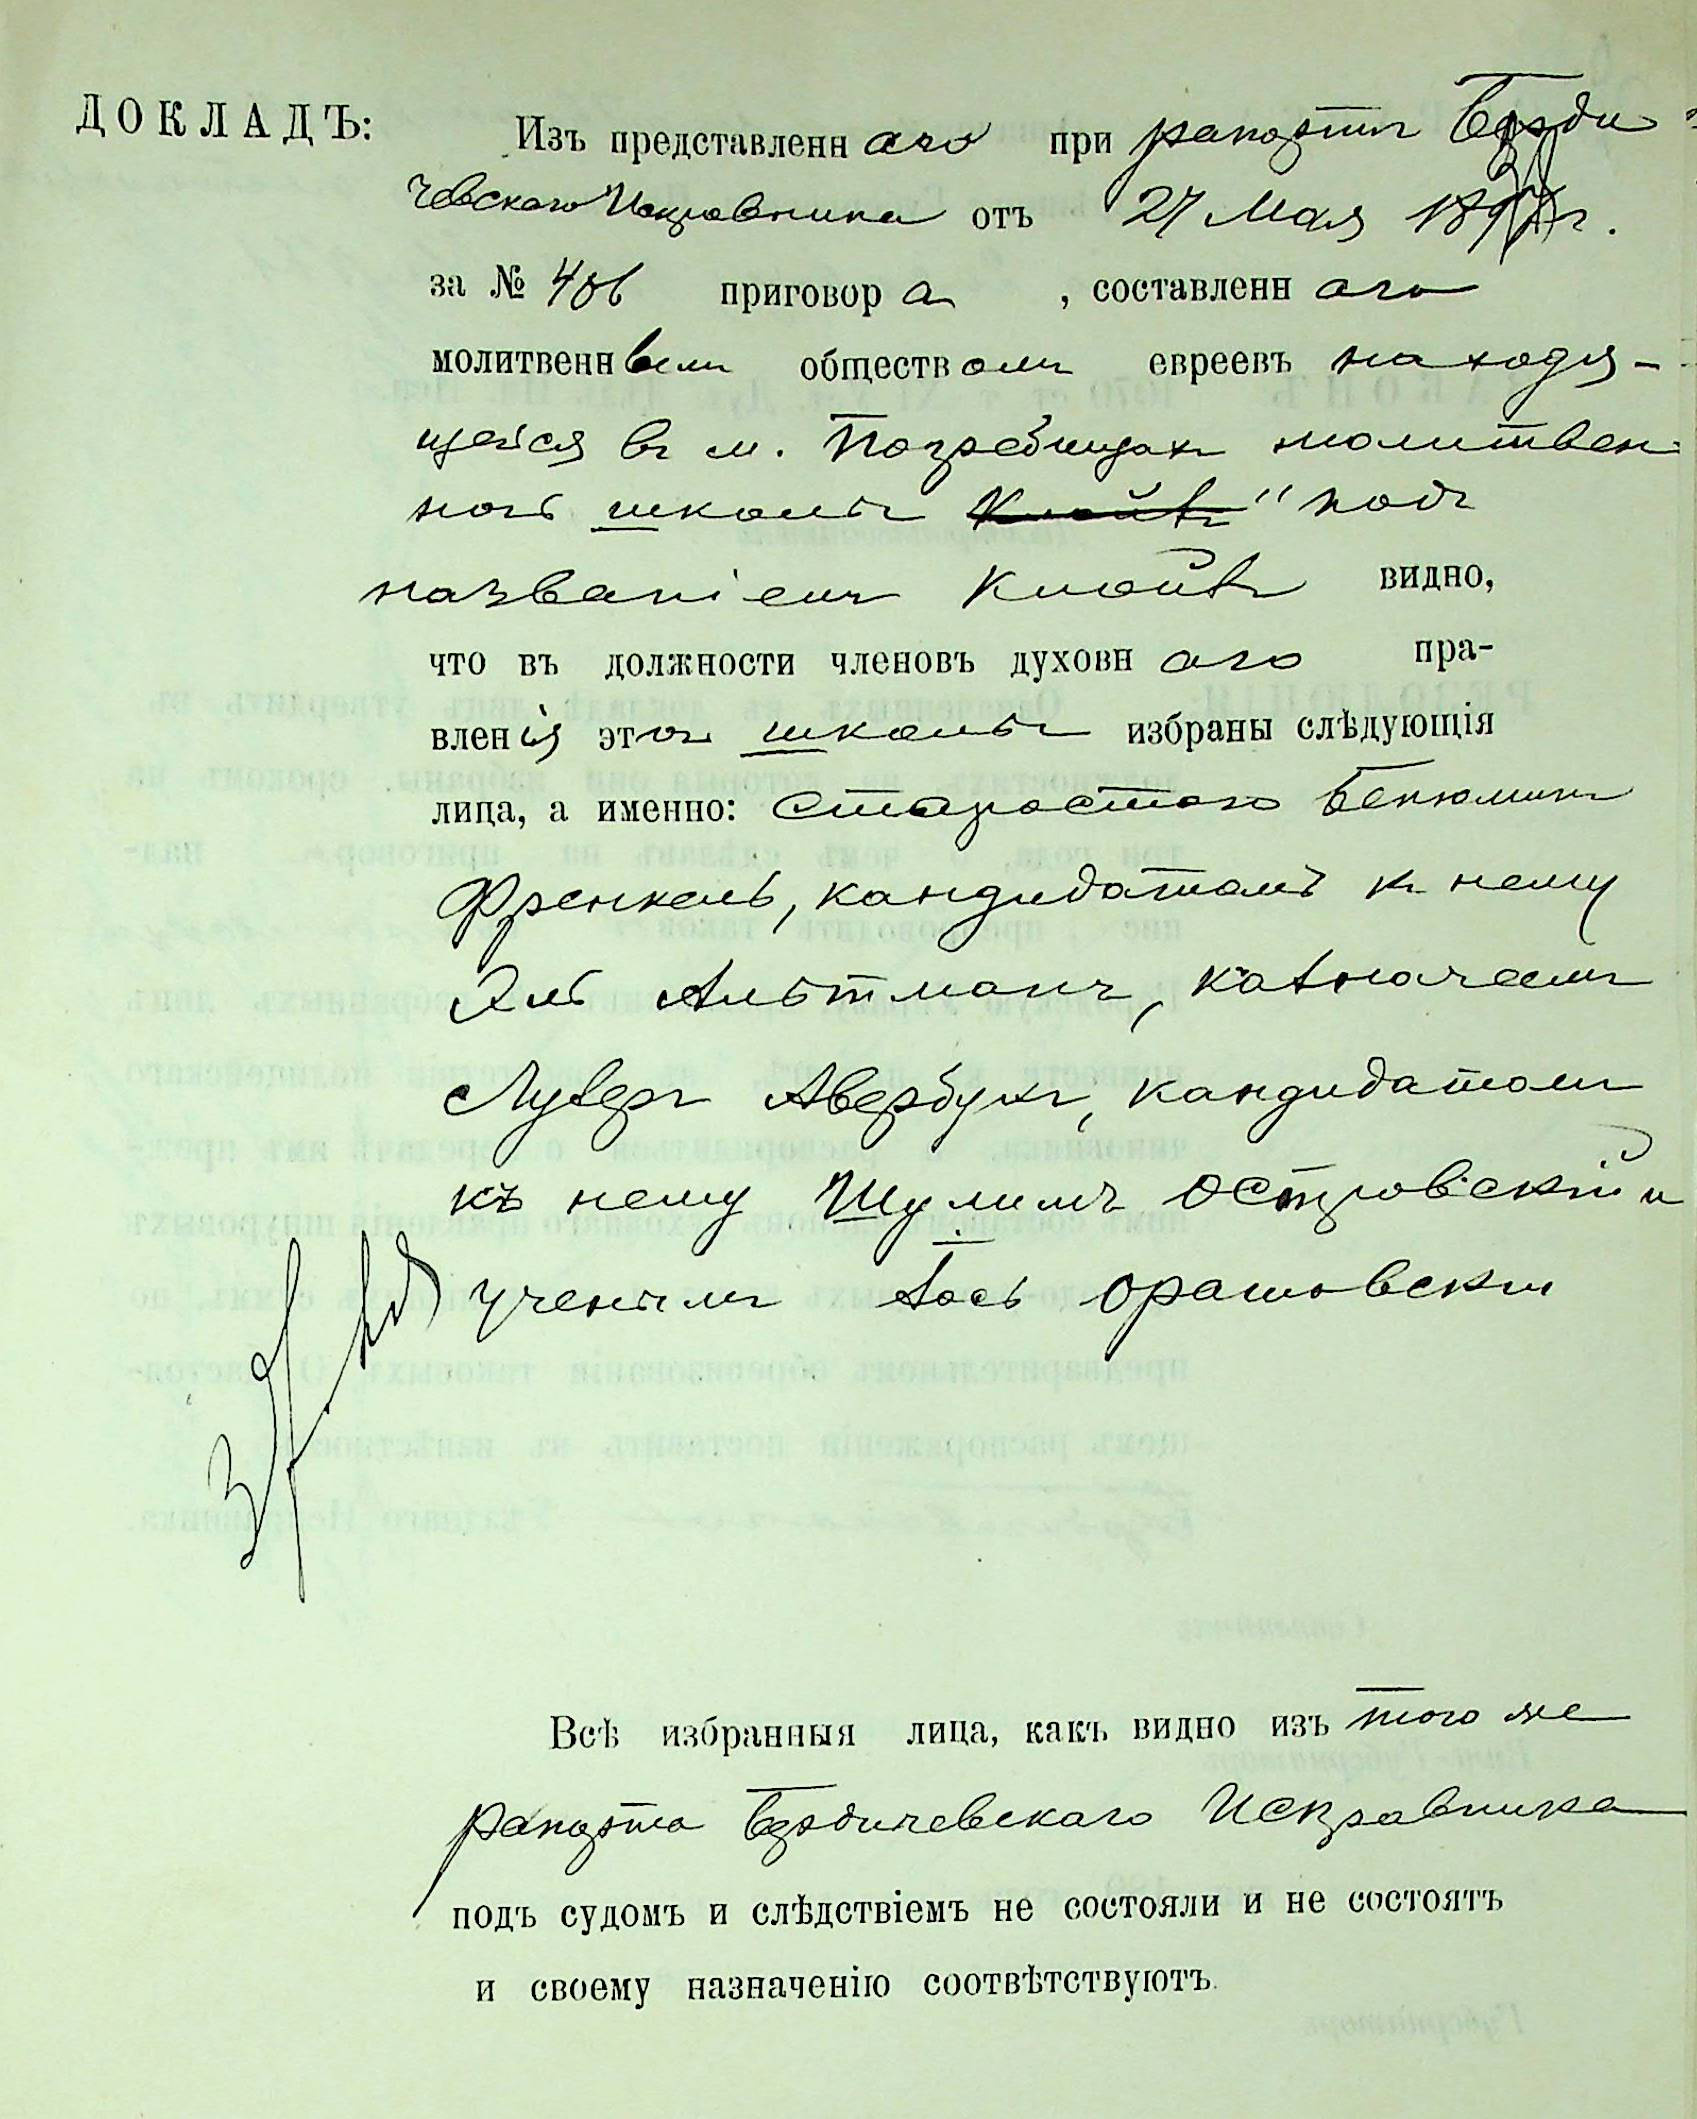 ДОКЛАДЪ: Изъ представленнаго при рапортѣ Берди-
чевскаго Исправника отъ 27 Мая 189 г.
за № 406 приговора, составленнаго
молитвеннымъ обществомъ евреевъ находя-
щейся въ м. Погребищахъ молитвен
ной школы Клойзъ" подъ
названіемъ Клойзъ видно,
что въ должности членовъ духовнаго пра-
вленія этой школы избраны слѣдующія
лица, а именно: старостою Бенюминъ
Френкель, кандидатомъ к нему
Эль Альтманъ, казначеемъ
Лузеръ Авербухъ, кандидатомъ
къ нему Шулимъ Островскій и
ученымъ Іось Оратовскій
Всѣ избранныя лица, какъ видно изъ того же
рапорта Бердичевскаго Исправника
подъ судомъ и слѣдствіемъ не состояли и не состоятъ
и своему назначенію соотвѣтствуютъ.